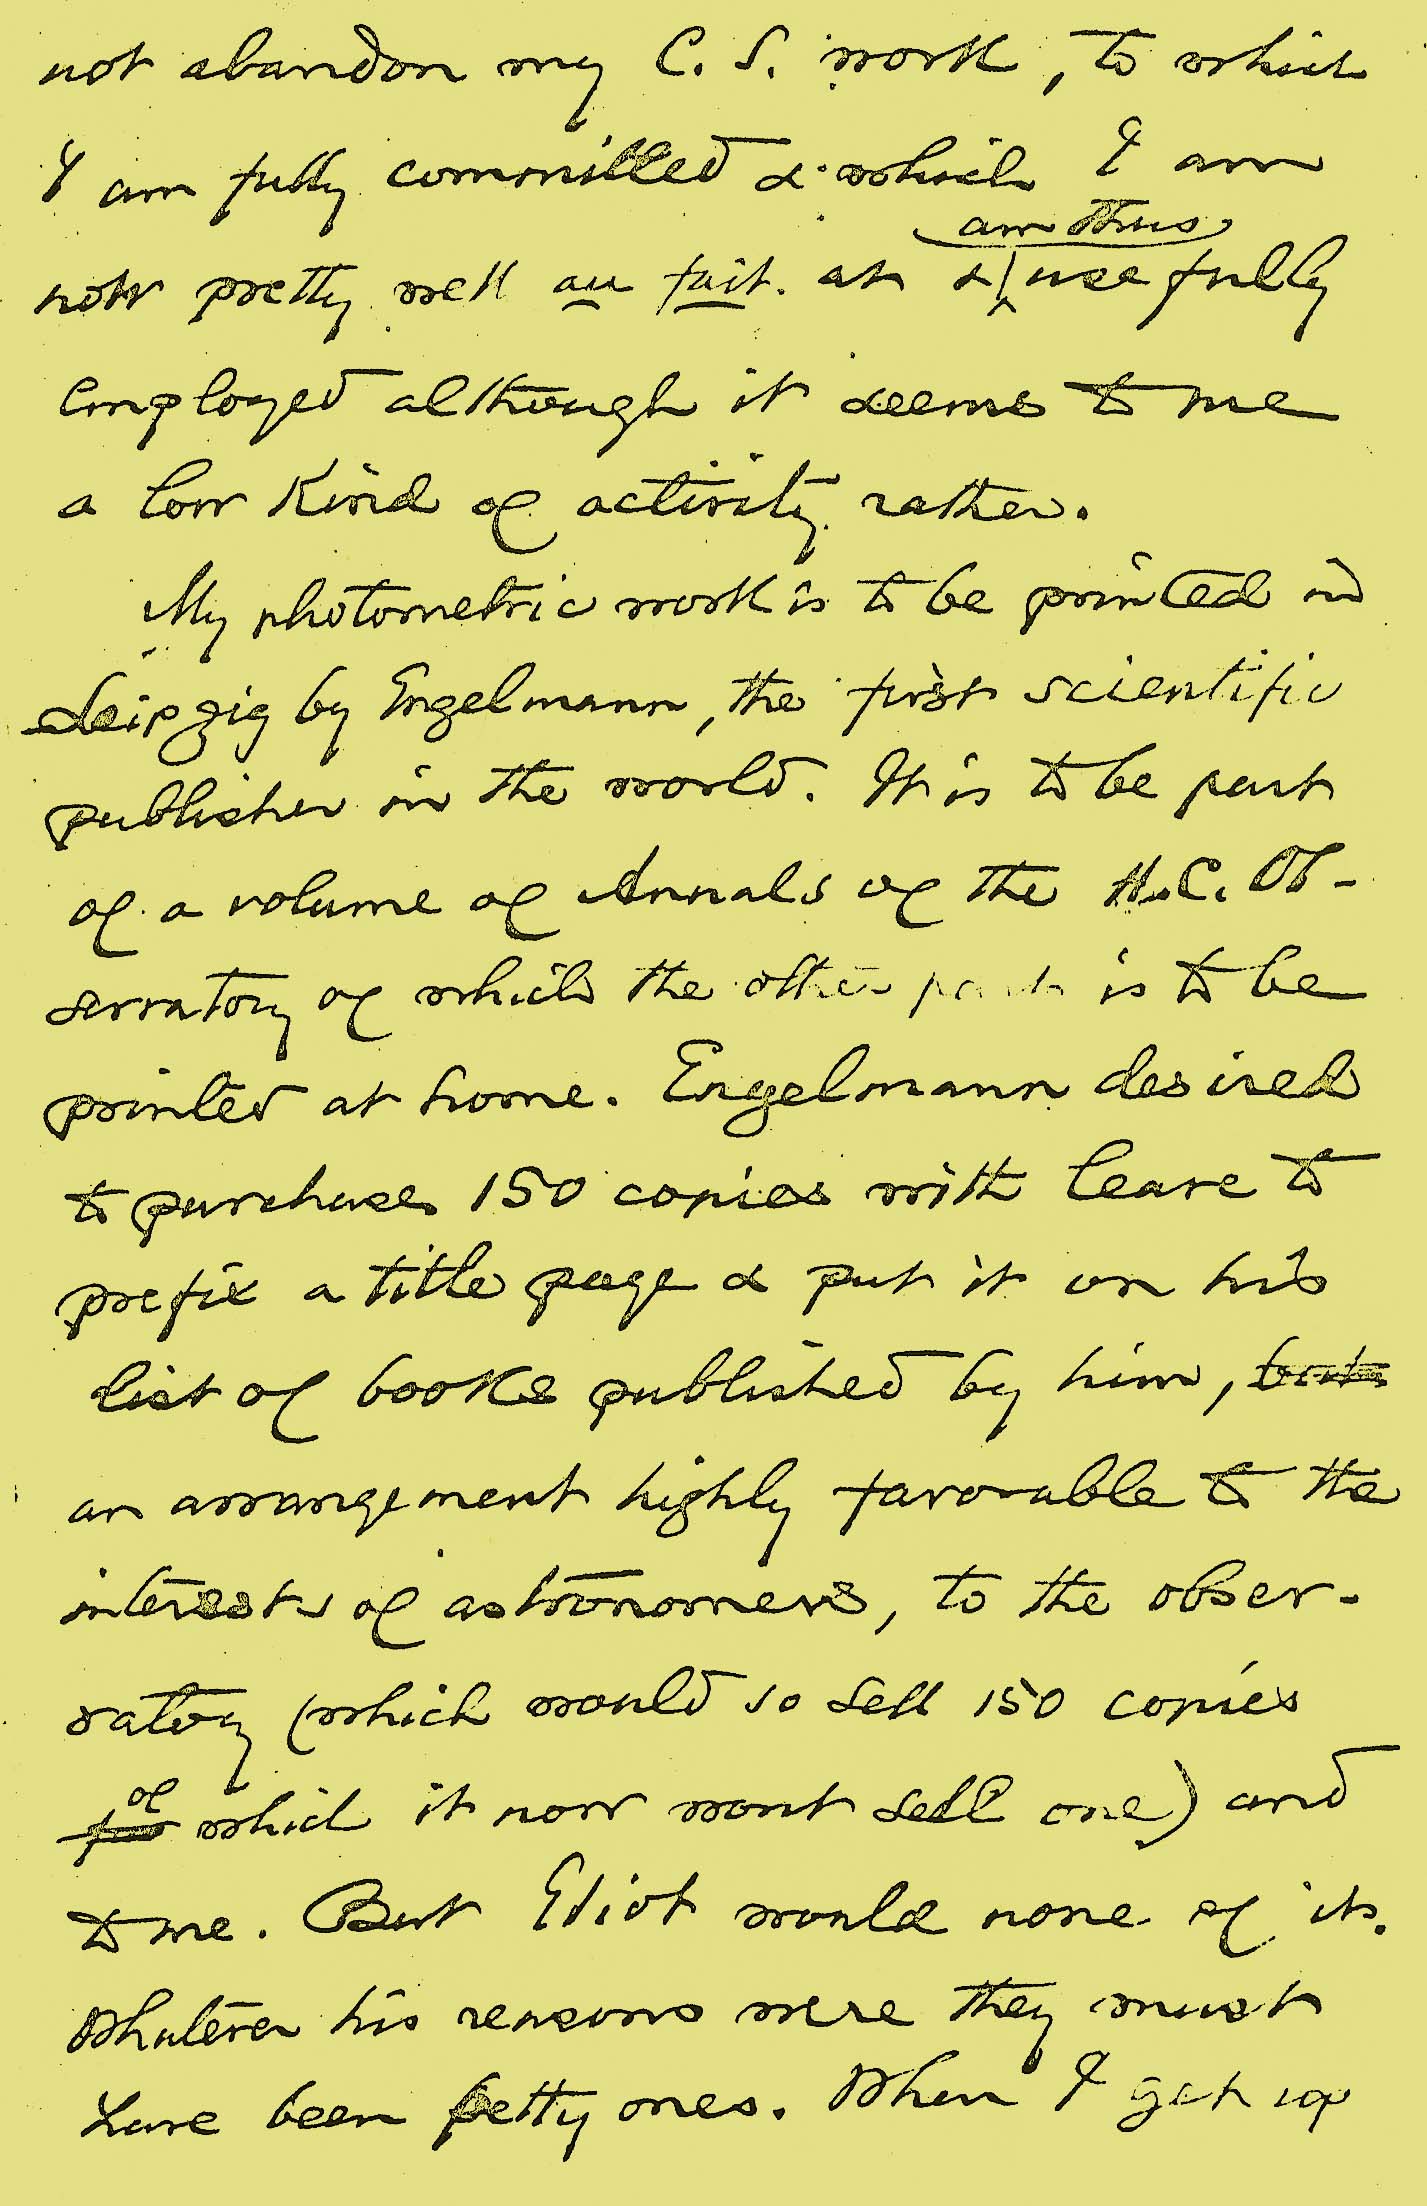 not abandon my C. S. work, to which
I am fully committed & which I am
am thus
now pretty well au fait at & usefully
employed although it seems to me
a low kind of activity rather.
My photometric work is to be printed in
Leipzig by Engelmann, the first scientific
publisher in the world. It is to be part
of a volume of Annals of the H.C. Ob-
servatory of which the other part is to be
printed at home. Engelmann desired
to purchase 150 copies with leave to
prefix a title page & put it on his
list of books published by him, but
an arrangement highly favorable to the
interests of astronomers, to the obser-
vatory (which would so sell 150 copies
of
for which it now wont sell one) and
to me. But Eliot would none of it.
Whatever his reasons were they must
have been petty ones. When I get up